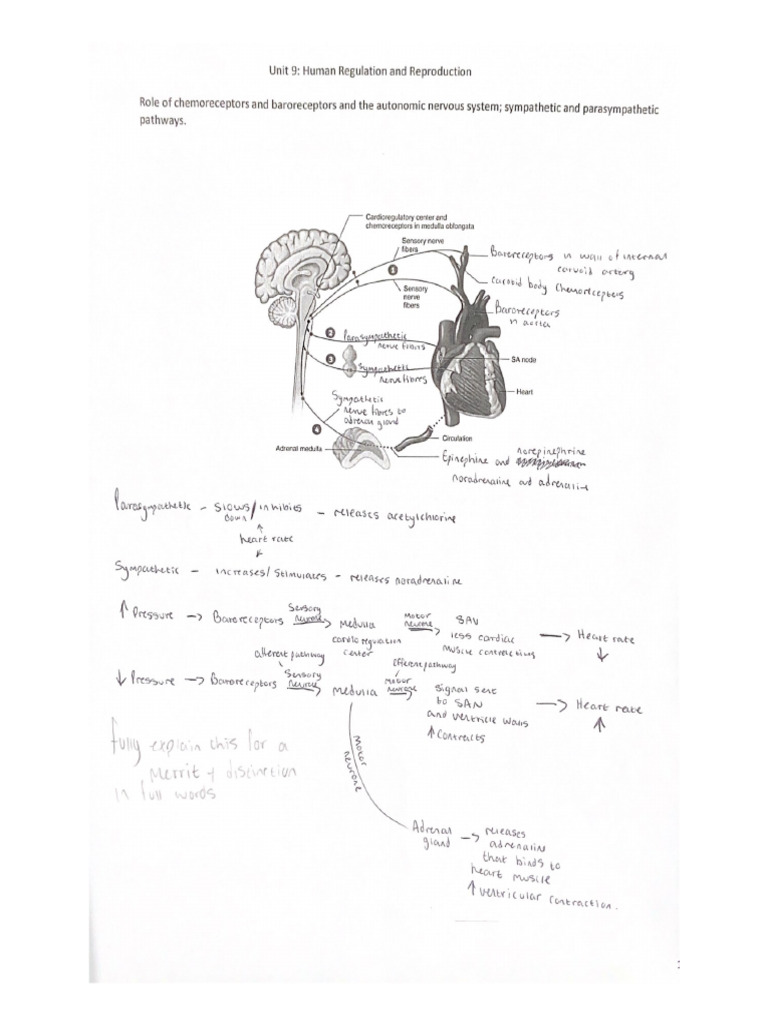 Unit 9: Human Regulation and Reproduction
Role of chemoreceptors and baroreceptors and the autonomic nervous system; sympathetic and parasympathetic
pathways.
Cardioregulatory center and
chemoreceptors in medulla oblongata
Sensory nerve
fibers
Baroreceptors in wall of internal
carotid artery
1
Sensory
nerve
fibers
Carotid body Chemoreceptors
Baroreceptors
in aorta
2
Parasympathetic
nerve fibres
3
Sympathetic
nerve fibres
SA node
Heart
Sympathetic
nerve fibres to
adrenal gland
4
Adrenal medulla
Circulation
Epinephine and norepinephrine
noradrenaline and adrenaline
Parasympathetic - Slows/inhibits - releases acetylchlorine
down
heart rate
Sympathetic - increases/stimulates - releases noradrenaline
↑ Pressure → Baroreceptors Sensory neurone → Medulla Motor neurone → SAN → Heart rate ↓
cardio regulation center
less cardiac
muscle contractions
afferent pathway
efferent pathway
↓ Pressure → Baroreceptors Sensory neurone → Medulla Motor neurone → signal sent → Heart rate ↑
to SAN
and ventricle walls
↑ contracts
fully explain this for a
Merrit + discinction
in full words
Motor
neurone
Adrenal gland → releases
adrenalin
that binds to
heart muscle
↑ ventricular contraction.